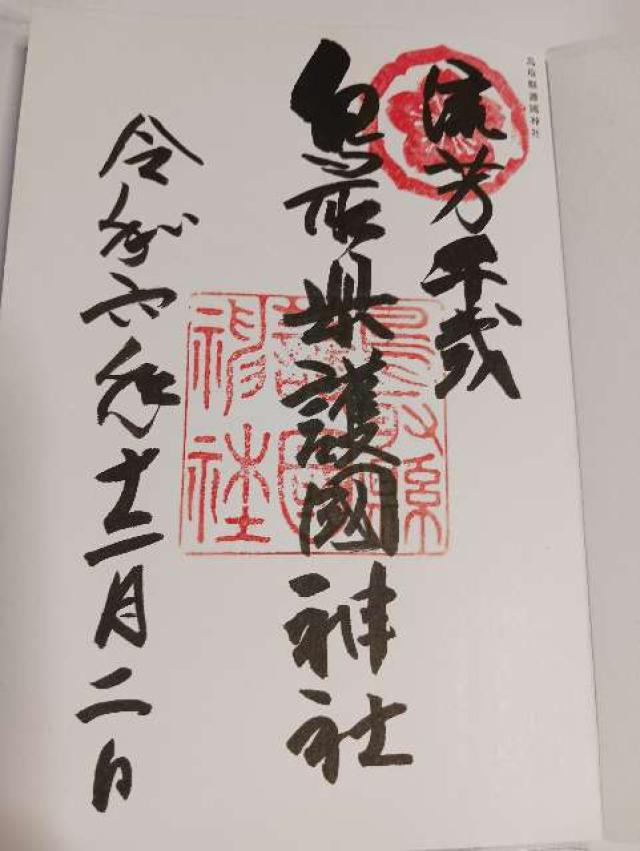 鳥取縣護國神社
流芳千歳
鳥取県護國神社
鳥取縣護國神社
令和六年十二月二日